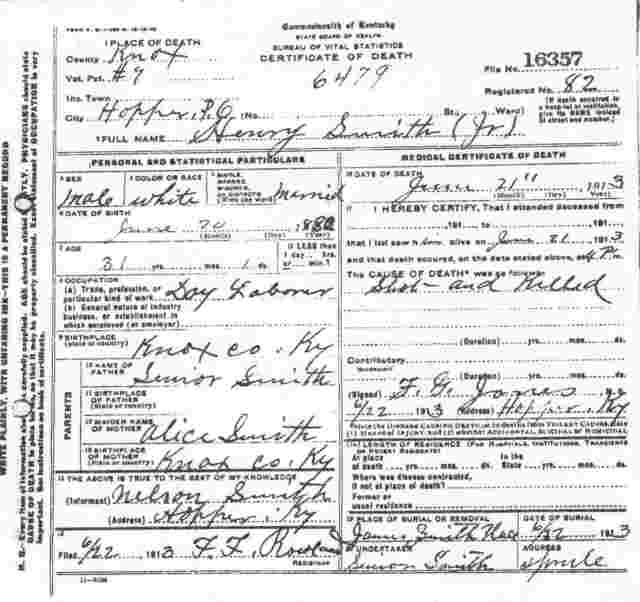 Commonwealth of Kentucky
STATE BOARD OF HEALTH
BUREAU OF VITAL STATISTICS
CERTIFICATE OF DEATH
1 PLACE OF DEATH
County Knox
Vot. Pct. #9
Inc. Town
City Hopper, P.O. (No. St.; Ward)
6479
File No. 16357
Registered No. 82
[If death occurred in a hospital or institution, give its NAME instead of street and number.]
2 FULL NAME Henry Smith (Jr)
PERSONAL AND STATISTICAL PARTICULARS
3 SEX Male
4 COLOR OR RACE white
5 SINGLE, MARRIED, WIDOWED, OR DIVORCED (Write the word) Married
6 DATE OF BIRTH
June 20 1882
(Month) (Day) (Year)
7 AGE
31 yrs. mos. 1 ds.
If LESS than 1 day hrs. or min.?
8 OCCUPATION
(a) Trade, profession, or particular kind of work Day Laborer
(b) General nature of industry business, or establishment in which employed (or employer)
9 BIRTHPLACE (State or country) Knox co. Ky
PARENTS
10 NAME OF FATHER Senior Smith
11 BIRTHPLACE OF FATHER (State or country)
12 MAIDEN NAME OF MOTHER Alice Smith
13 BIRTHPLACE OF MOTHER (State or country) Knox co. Ky
14 THE ABOVE IS TRUE TO THE BEST OF MY KNOWLEDGE
(Informant) Nelson Smith
(Address) Hopper Ky
15
Filed 6/22 1913 F. F. Rowland
REGISTRAR
11-9184
MEDICAL CERTIFICATE OF DEATH
16 DATE OF DEATH
June 21" 1913
(Month) (Day) (Year)
17 I HEREBY CERTIFY, That I attended deceased from
191 , to 191 ,
that I last saw him alive on June 21 1913
and that death occurred, on the date stated above, at 4 P.m.
The CAUSE OF DEATH* was as follows:
Shot and Killed
(Duration) yrs. mos. ds.
Contributory
(Duration) yrs. mos. ds.
(Signed) F. G.
6/22 1913 (Address) Hopper Ky
18 LENGTH OF RESIDENCE (For Hospitals, Institutions, Transients or Recent Residents)
At place of death yrs. mos. ds. In the State yrs. mos. ds.
Where was disease contracted, if not at place of death?
Former or usual residence
19 PLACE OF BURIAL OR REMOVAL James Smith Place
DATE OF BURIAL 6/22 1913
20 UNDERTAKER Senior Smith
ADDRESS Sprule
WRITE PLAINLY, WITH UNFADING INK—THIS IS A PERMANENT RECORD
N. B.—Every item of information should be carefully supplied. AGE should be stated EXACTLY. PHYSICIANS should state
CAUSE OF DEATH in plain terms, so that it may be properly classified. Exact statement of OCCUPATION is very
important. See instructions on back of certificate.